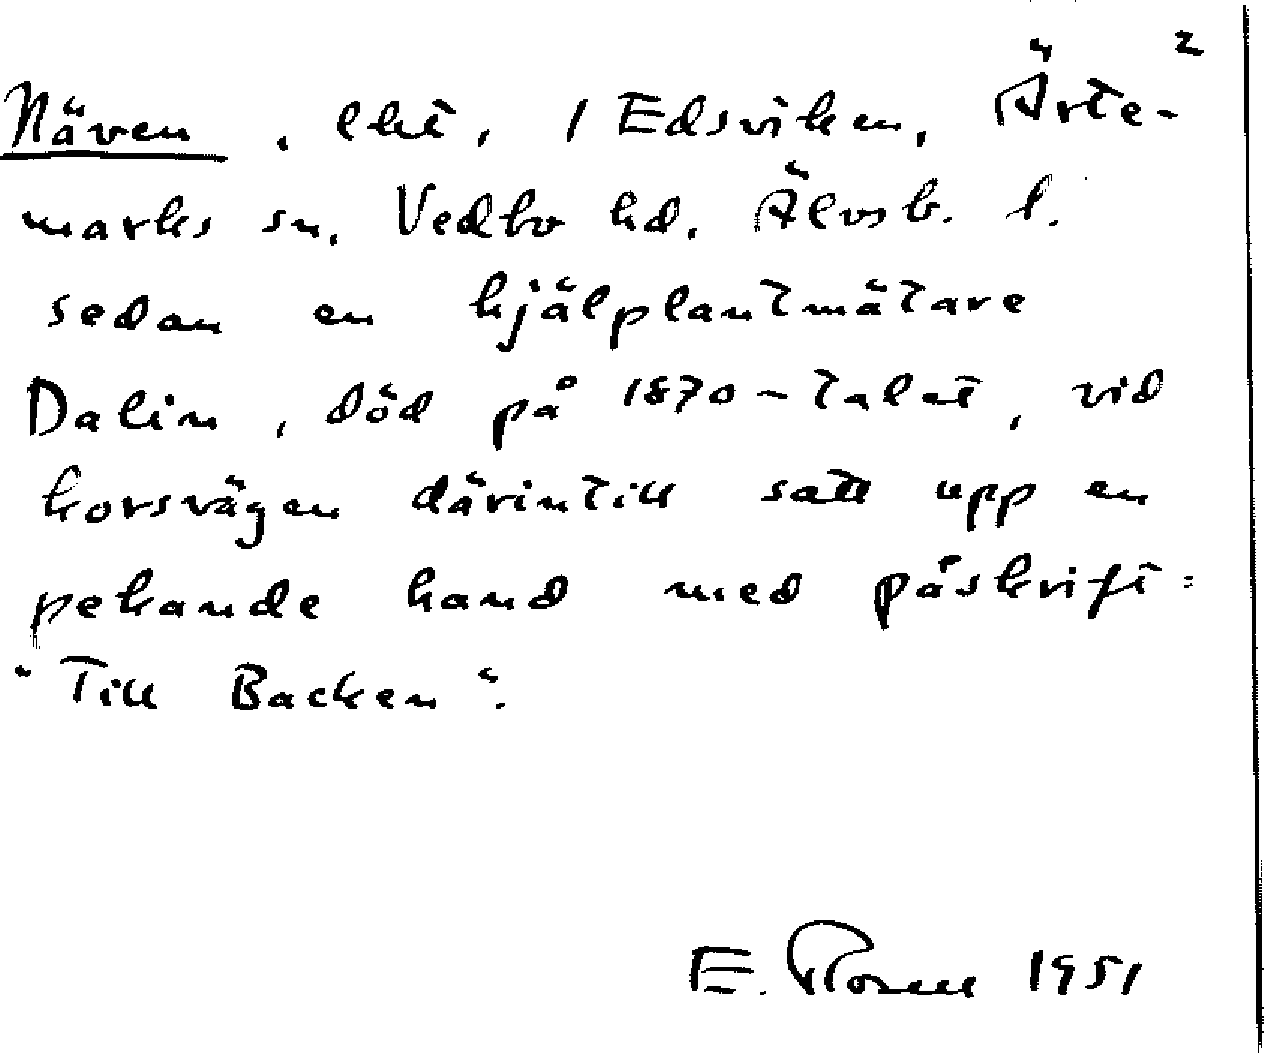 2
Näven, lht, 1 Edsviken, Ärte-
marks sn, Vedbo hd, Älvsb. l.
sedan en hjälplantmätare
Dalin, död på 1870-talet, vid
korsvägen därintill satt upp en
pekande hand med påskrift:
"Till Backen".
E. 1951